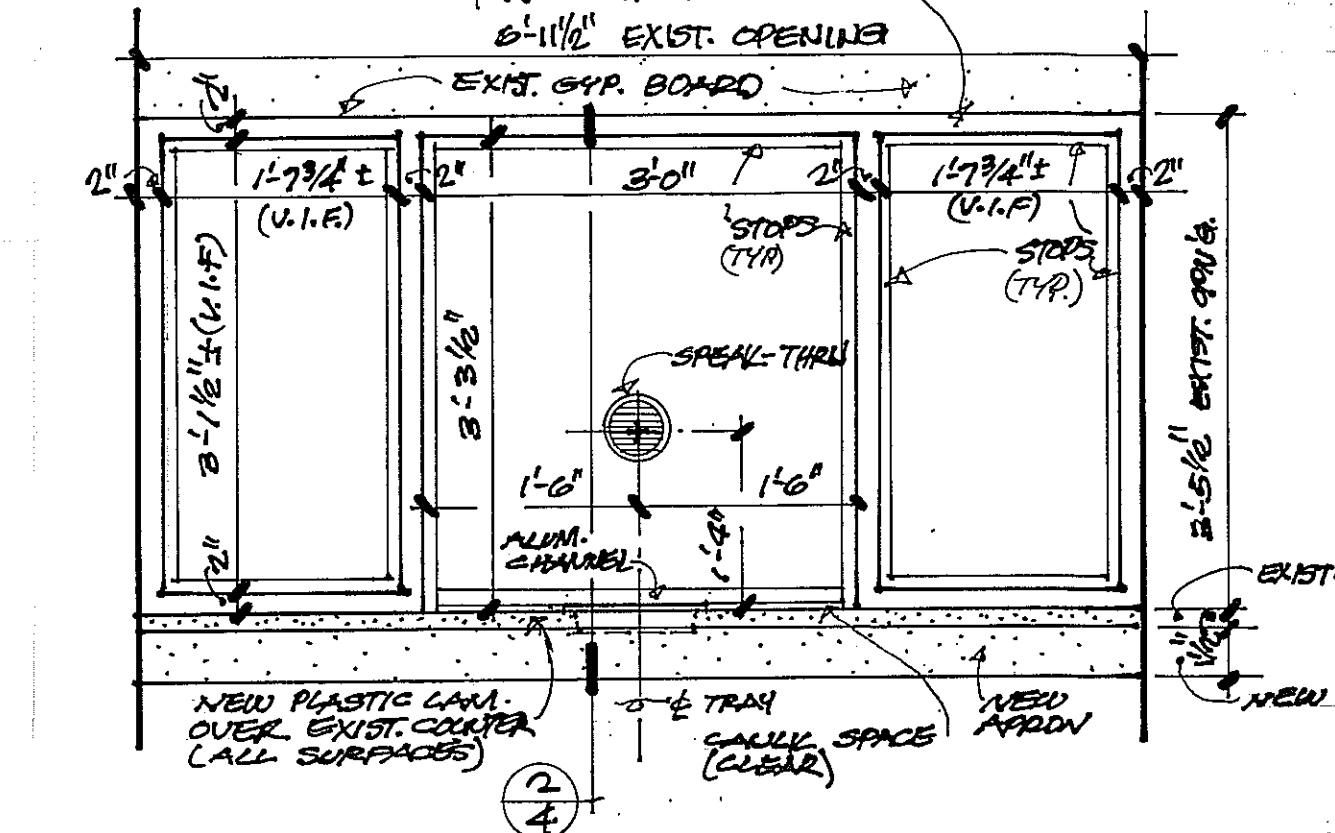 6'-11 1/2" EXIST. OPENING
EXIST. GYP. BOARD
2"
2"
1'-7 3/4" ±
(V.I.F.)
2"
3'-0"
2"
1'-7 3/4" ±
(V.I.F)
2"
STOPS
(TYP)
STOPS
(TYP.)
3'-1 1/2" ± (V.I.F)
3'-3 1/2"
3'-5 1/2" EXIST. OPN'G.
SPEAK-THRU
1'-6"
1'-6"
1'-4"
ALUM.
CHANNEL
2"
EXIST.
NEW
NEW PLASTIC LAM.
OVER EXIST. COUNTER
(ALL SURFACES)
℄ TRAY
CAULK SPACE
(CLEAR)
NEW
APRON
2
4